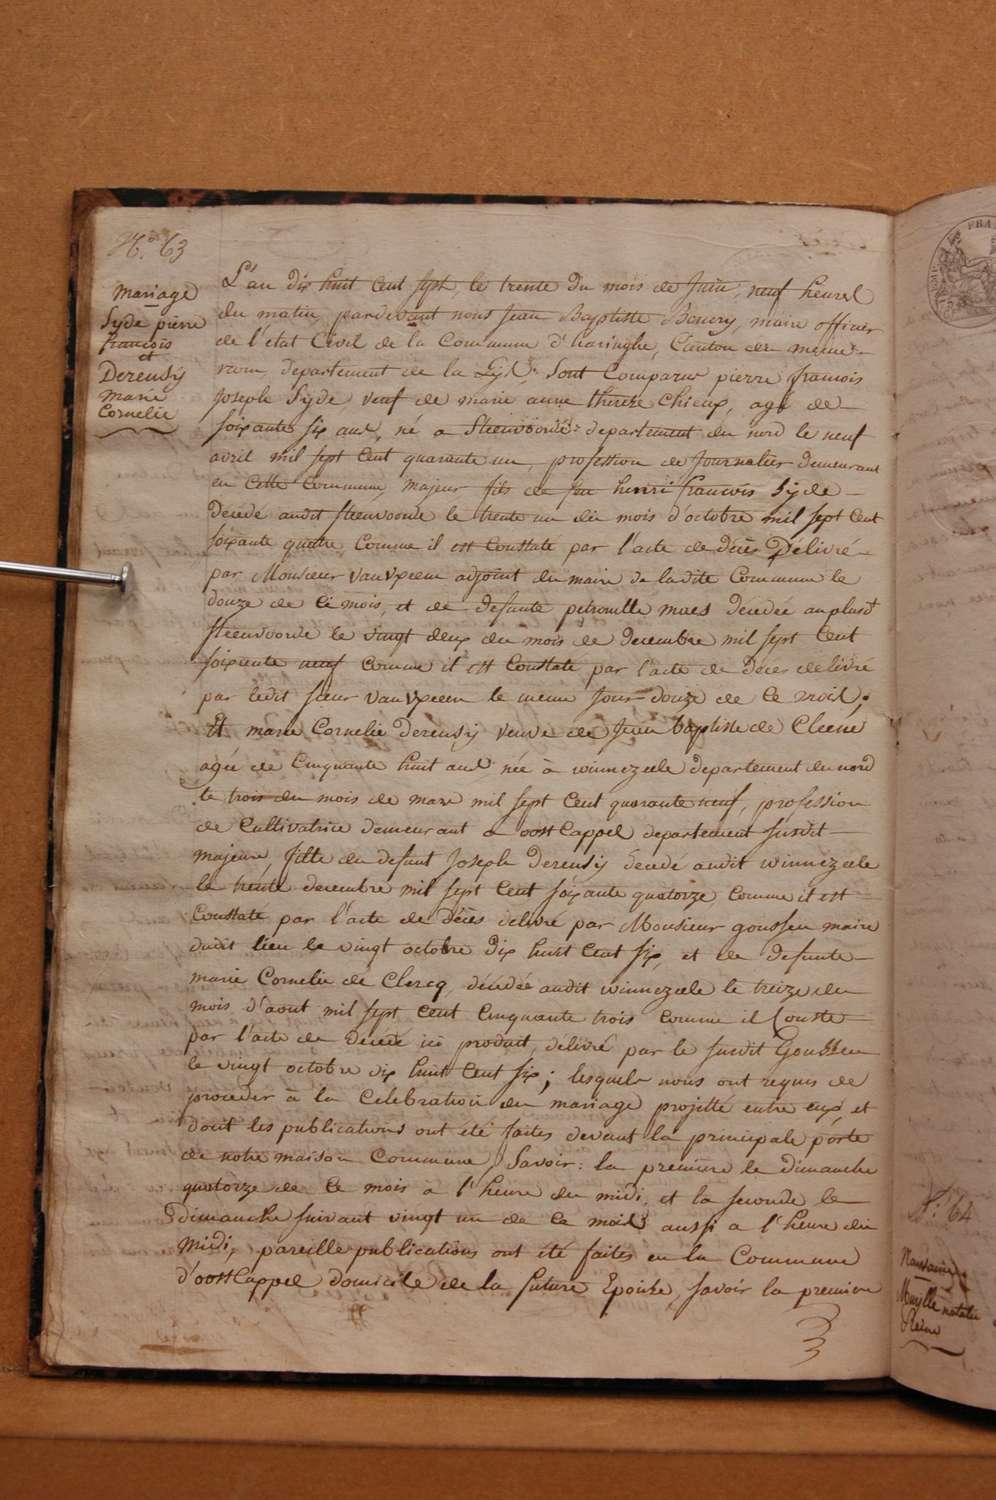 N.° 63
mariage
Syde pierre
francois
et
Dereusÿ
marie
Cornelie
L'an dix huit cent sept, le trente du mois de Juin, neuf heures
du matin, pardevant nous Jean Baptiste Bouery, maire officier
de l'état Civil de la Commune d'haringhe, Canton de
département de la Lys, sont Comparus pierre francois
Joseph Syde veuf de marie anne therese Chieux, agé de
soixante six ans, né a Steenvoorde departement du nord le neuf
avril mil sept Cent quarante un, profession de Journalier demeurant
en Cette Commune, majeur fils de feu henri francois Syde
décédé audit steenvoorde le trente un du mois d'octobre mil sept Cent
soixante quatre, Comme il est Constaté par l'acte de décès délivré
par Monsieur vanuxeem adjoint du maire de ladite Commune le
douze de Ce mois, et de defunte petronille maes décédée
steenvoorde le vingt deux du mois de decembre mil sept Cent
soixante neuf Comme il est Constaté par l'acte de deces delivré
par ledit sieur vanuxeem le meme Jour douze de Ce mois;
Et marie Cornelie Dereusÿ veuve de Jean baptiste de Cleene
agée de Cinquante huit ans née à winnezeele département du nord
le trois du mois de mars mil sept Cent quarante neuf, profession
de Cultivatrice demeurant a oost Cappel departement susdit
majeure, fille du defunt Joseph Dereusÿ décédé audit winnezeele
le trente decembre mil sept Cent soixante quatorze Comme il est
Constaté par l'acte de décès délivré par Monsieur goussen maire
dudit lieu le vingt octobre dix huit Cent six, et de defunte
marie Cornelie de Clercq, décédée audit winnezeele le treize du
mois d'aout mil sept Cent Cinquante trois Comme il Conste
par l'acte de décédé ici produit, délivré par le susdit Goussen
le vingt octobre dix huit Cent six; lesquels nous ont requis de
proceder à la Célébration du mariage projetté entre eux, et
dont les publications ont été faites devant la principale porte
de notre maison Commune, Savoir: la premiere le dimanche
quatorze de Ce mois à l'heure du midi, et la seconde le
dimanche suivant vingt un de Ce mois aussi a l'heure du
Midi, pareille publications ont été faites en la Commune
d'oost Cappel domicile de la future Epouse, savoir la premiere
N.° 64
Muylle natalie
Reine